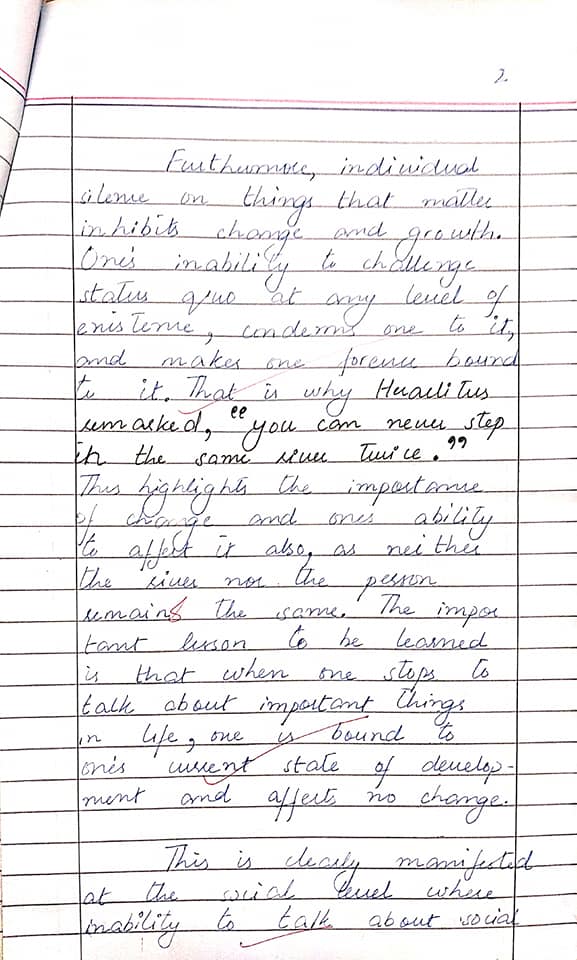 2.
Furthermore, individual
silence on things that matter
inhibits change and growth.
One's inability to challenge
status quo at any level of
existence, condemns one to it,
and makes one forever bound
to it. That is why Heraclitus
remarked, "you can never step
in the same river twice."
This highlights the importance
of change and ones ability
to affect it also, as neither
the river nor the person
remains the same. The impor
tant lesson to be learned
is that when one stops to
talk about important things
in life, one is bound to
one's current state of develop-
ment and affects no change.
This is clearly manifested
at the social level where
inability to talk about social